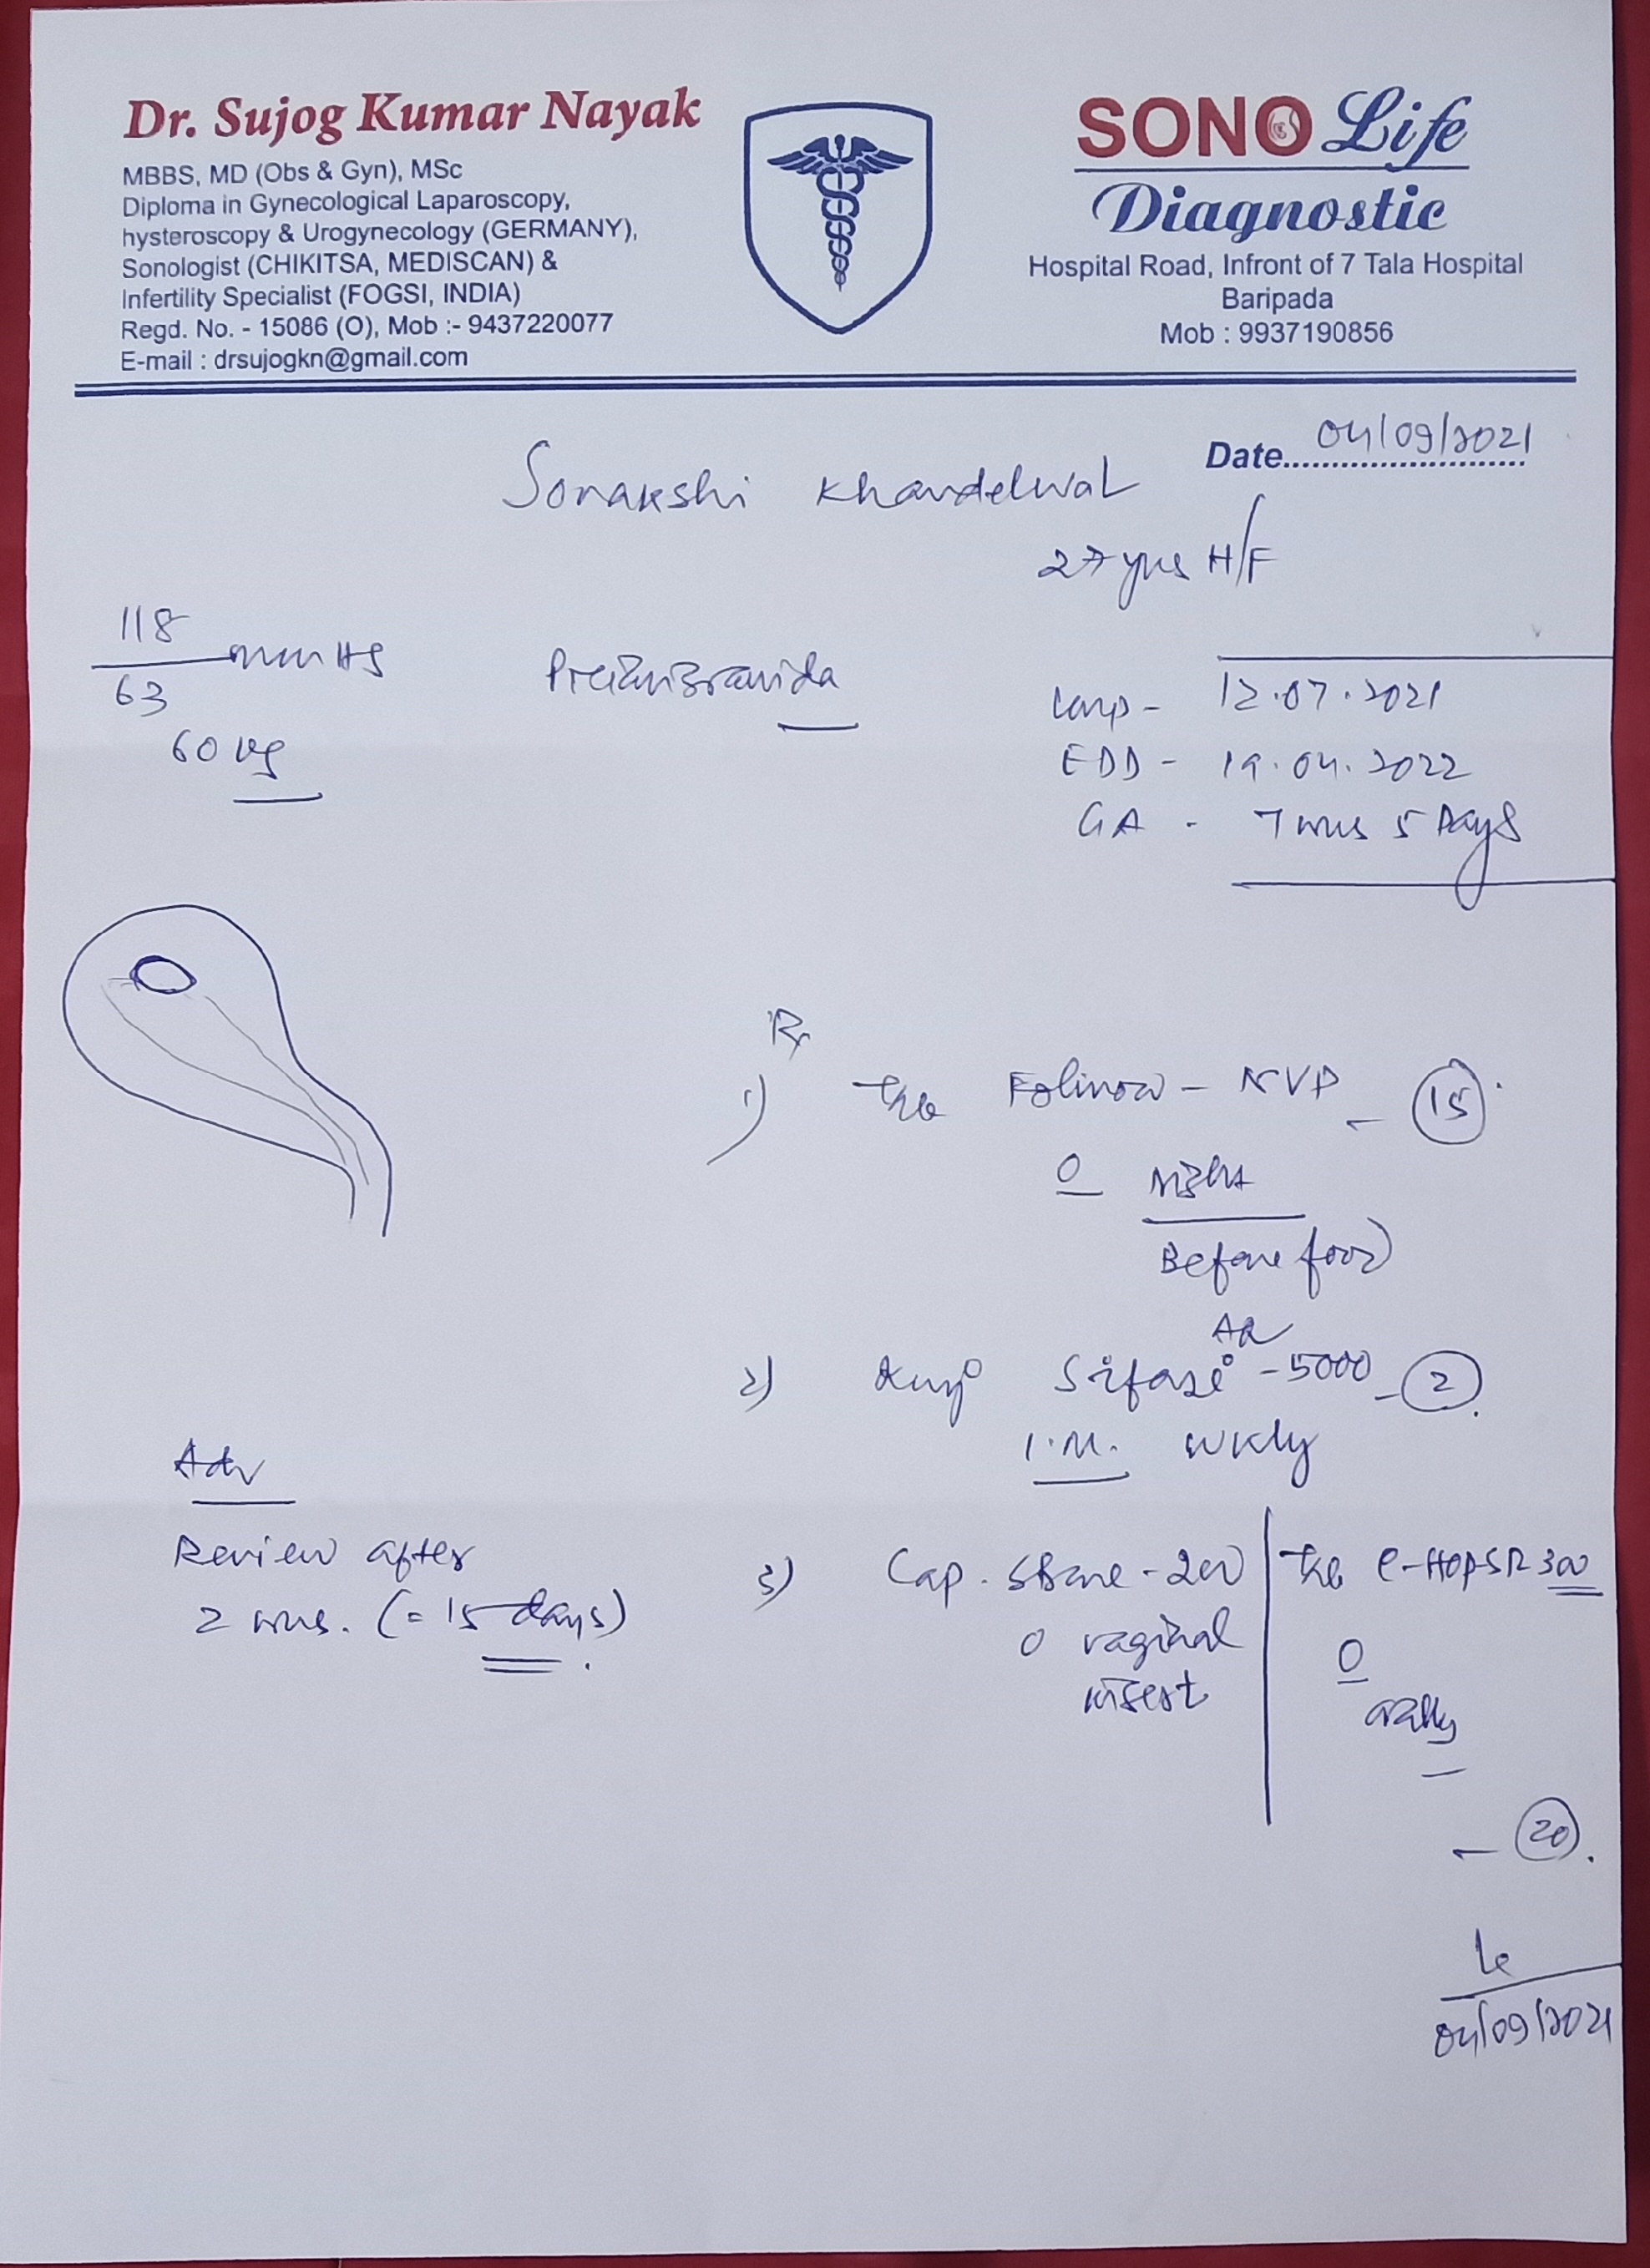 Dr. Sujog Kumar Nayak
MBBS, MD (Obs & Gyn), MSc
Diploma in Gynecological Laparoscopy,
hysteroscopy & Urogynecology (GERMANY),
Sonologist (CHIKITSA, MEDISCAN) &
Infertility Specialist (FOGSI, INDIA)
Regd. No. - 15086 (O), Mob :- 9437220077
E-mail : drsujogkn@gmail.com
SONO Life
Diagnostic
Hospital Road, Infront of 7 Tala Hospital
Baripada
Mob : 9937190856
Date 04/09/2021
Sonakshi Khandelwal
27 yrs H/F
118
63 mmHg
60 kg
Primigravida
Lmp - 12.07.2021
EDD - 19.04.2022
GA - 7 wks 5 Days
Rx
1) Tab Folinow - NVP - 15
0 Night
Before food
2) Inj Sifasi AQ - 5000 - 2
I.M. wkly
Adv
Review after
2 wks. (= 15 days)
3) Cap. - 200
0 vaginal
insert
Tab SR 300
0
orally
- 20.
04/09/2021